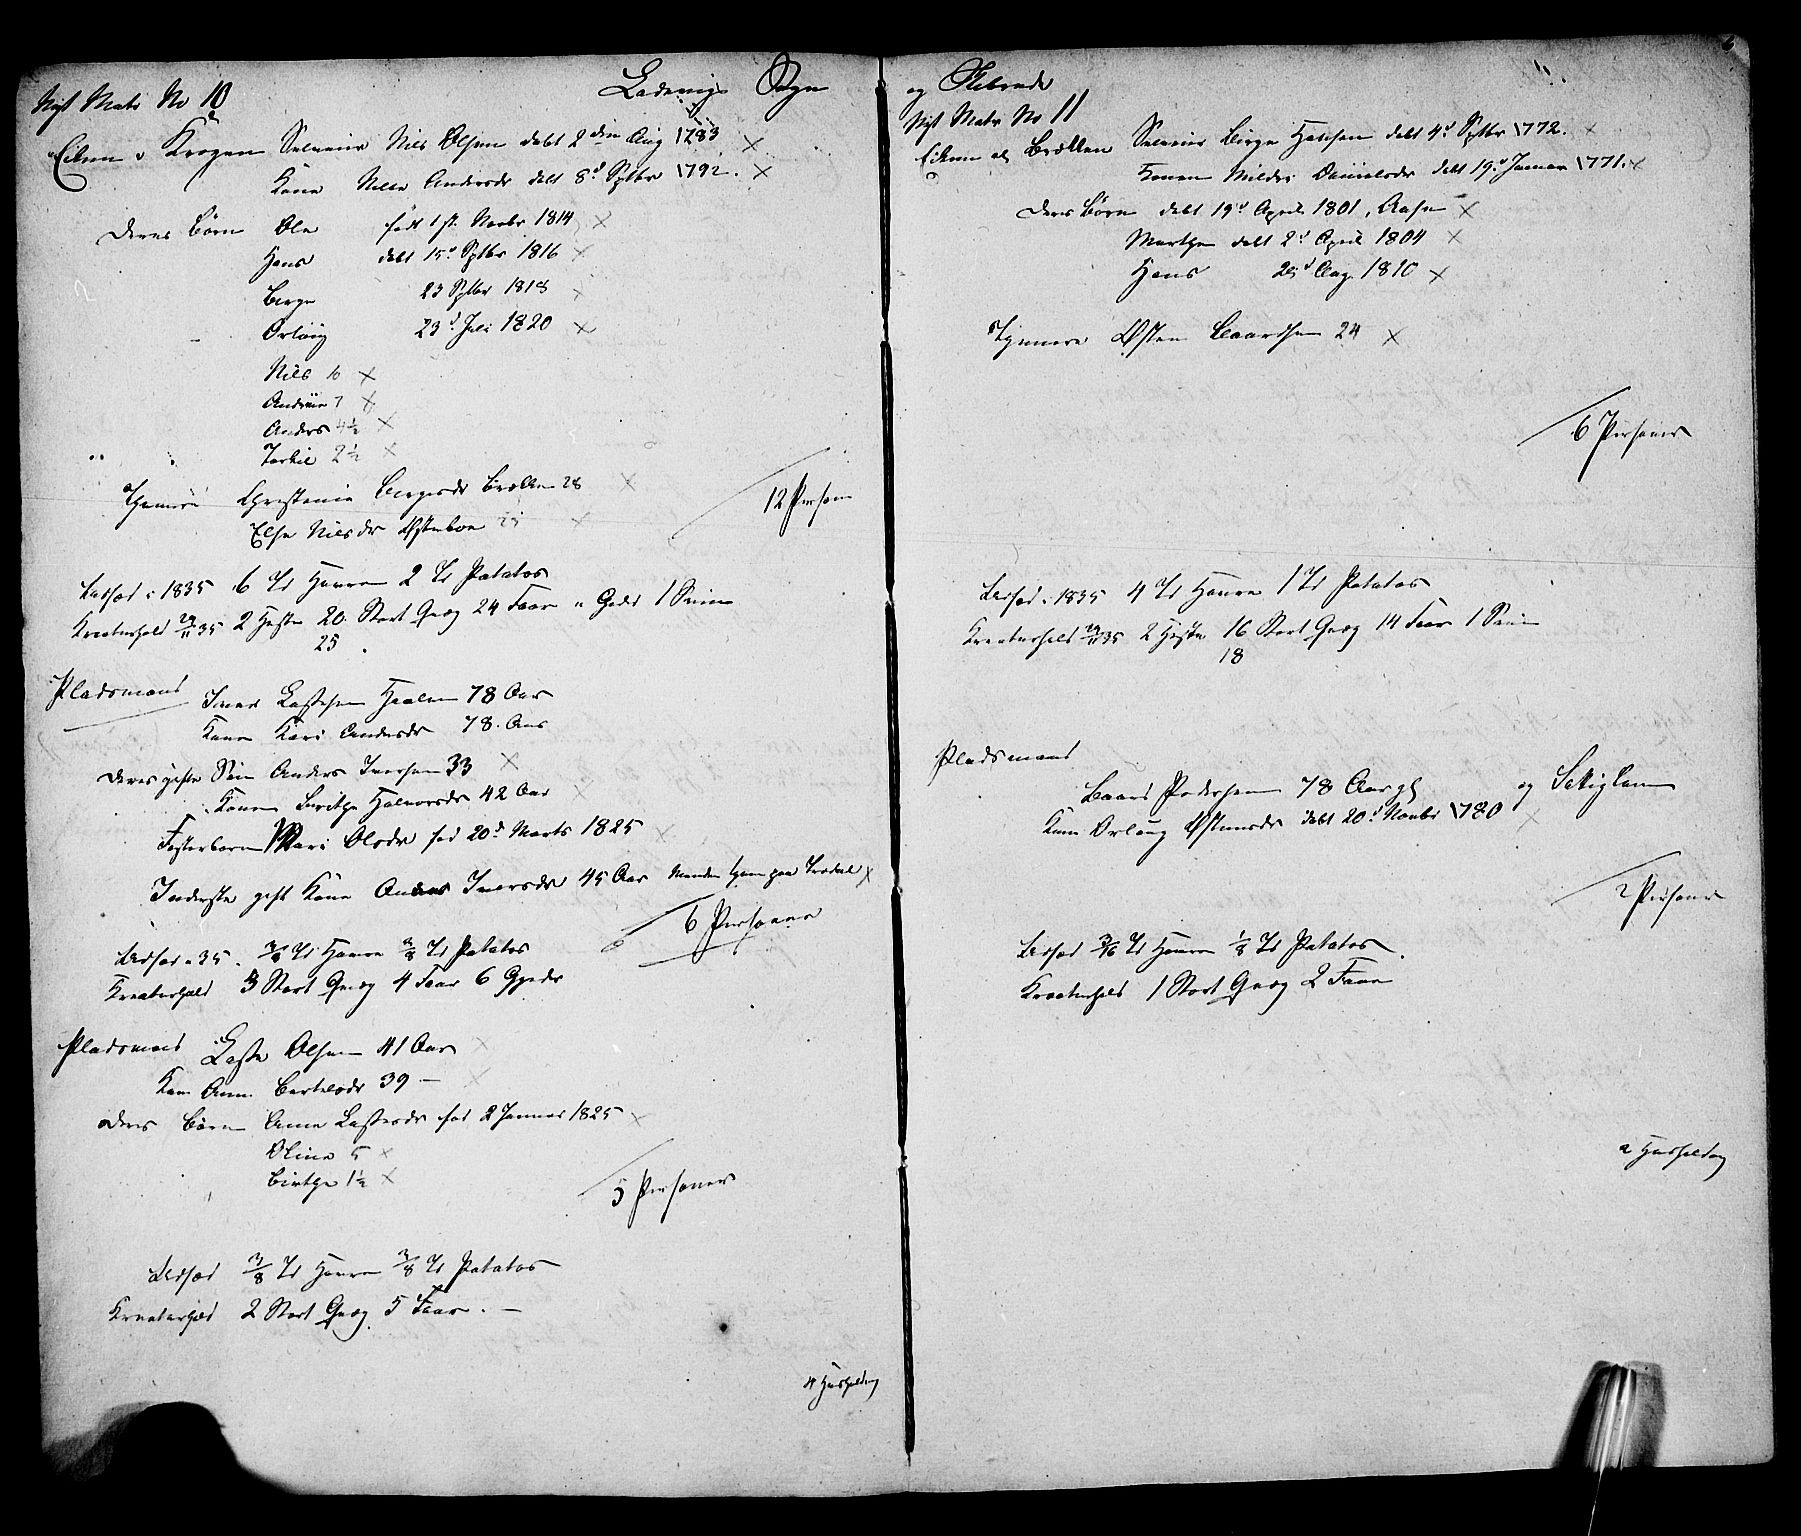 Nyt Matr No 10
Ladevigs Sogn
Eiken v Krogen Selveier Nils Olsen døbt 2den Aug 1783 ×
Kone Andersdr døbt 8d Septbr 1792. ×
Deres Børn Ole født 1st. Novbr 1814 ×
Hans døbt 15d Septbr 1816 ×
Berge 23 Septbr 1818 ×
Orlaug 23d Juli 1820 ×
Nils 10 ×
Andreas 7 ×
Anders 4½ ×
Torkil 2½ ×
Tjenere Christense Bergesdr Brækken 28 ×
Else Nilsdr Østeboe ×
12 Person
Udsæd i 1835 6 Td Havre 2 Td Patatos
Kreaturhold 29/11 35 2 Heste 20 Stort Qvæg 24 Faar " Geder 1 Sviin
25
Pladsmand Iver Lassesen 78 Aar
Kone Kari Andersdr 78 Aar
Deres gifte Søn Anders Iversen 33 ×
Konen Birthe Halvorsdr 42 Aar ×
Fosterbarn Mari Olsdr fød 20d Marts 1825 ×
Inderste gift Kone Iversdr 45 Aar Manden paa ×
6 Personer
Udsæd i 35. 3/8 Td Havre 3/8 Td Patatos
Kreaturhold 3 Stort Qvæg 4 Faar 6 Gjeder
Pladsmand Lasse Olsen 41 Aar ×
Kone Anne Bertelsdr 39 — ×
Deres Børn Anne Lassesdr fød 2 Januar 1825 ×
Oline 5 ×
Birthe 1½ ×
5 Personer
Udsæd 3/8 Td Havre 3/8 Td Patatos
Kreaturhold 2 Stort Qvæg 5 Faar. —
4 Husholdng
og Flebrede
6
Nyt Matr No 11
Eiken og Brækken Selveier Berge Hansen døbt 4d Septbr 1772. ×
Konen Mildri Danielsdr døbt 19d Januar 1771. ×
Deres Børn døbt 19d April 1801, Aase ×
Marthe døbt 2d April 1804 ×
Hans 25d Aug 1810 ×
Tjenere Østen Baardsen 24 ×
6 Personer
Udsæd i 1835 4 Td Havre 1 Td Patatos
Kreaturhold 29/11 35 2 Heste 16 Stort Qvæg 14 Faar 1 Sviin
18
Pladsmand
Baard Pedersen 78 Aar gl og
Kone Orlaug Østensdr døbt 20d Novbr 1780 ×
2 Personer
Udsæd 3/16 Td Havre 1/8 Td Patatos.
Kreaturhold 1 Stort Qvæg 2 Faar
2 Husholdng